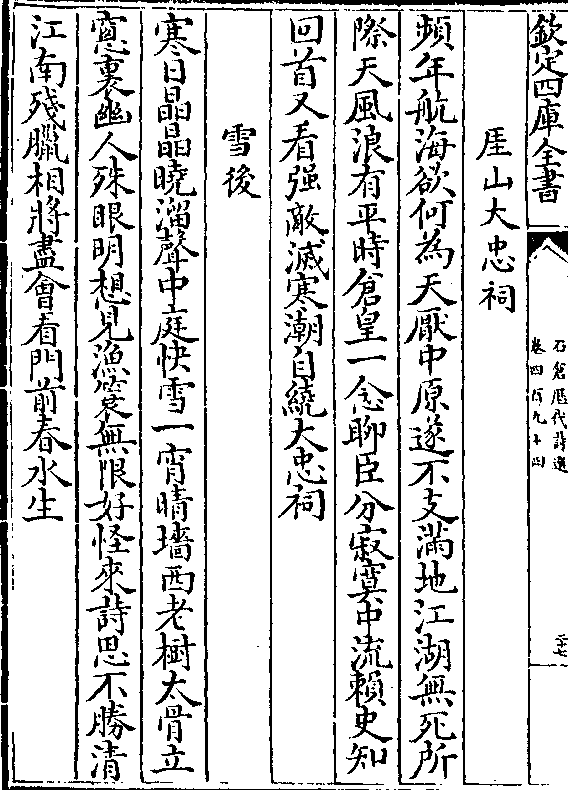 欽定四庫全書
石倉歷代詩選
卷四百九十四
二十七
厓山大忠祠
頻年航海欲何為天厭中原遂不支滿地江湖無死所
際天風浪有平時倉皇一念聊臣分寂寞中流賴史知
回首又看强敵滅寒潮自繞大忠祠
雪後
寒日晶晶曉溜聲中庭快雪一宵晴墻西老樹太骨立
窓裏幽人殊眼明想見漁蓑無限好怪來詩思不勝清
江南殘臘相將盡會看門前春水生